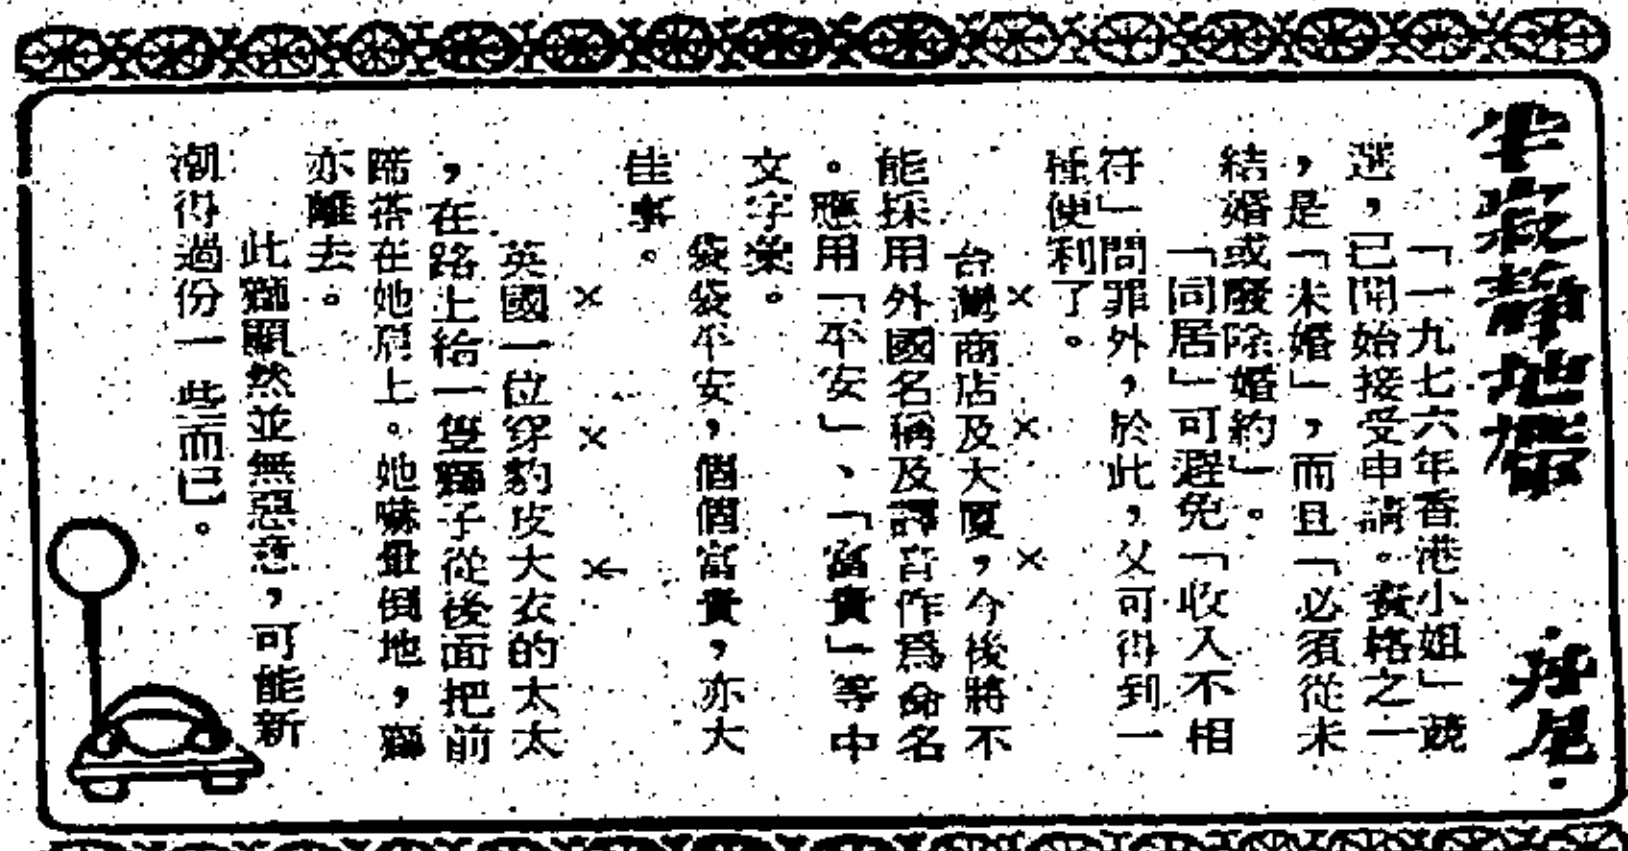 半寂靜地帶
·孖尾·
「一九七六年香港小姐」競
選，已開始接受申請。資格之一
，是「未婚」，而且「必須從未
結婚或廢除婚約」。
「同居」可避免「收入不相
符」問罪外，於此，又可得到一
種便利了。
×××
台灣商店及大厦，今後將不
能採用外國名稱及譯音作爲命名
。應用「平安」、「富貴」等中
文字榮。
袋袋平安，個個富貴，亦大
佳事。
×××
英國一位穿豹皮大衣的太太
，在路上給一隻獅子從後面把前
蹄搭在她肩上。她嚇暈倒地，獅
亦離去。
此獅顯然並無惡意，可能新
潮得過份一些而已。